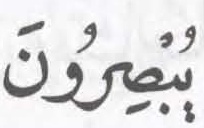 يُبْصِرُونَ